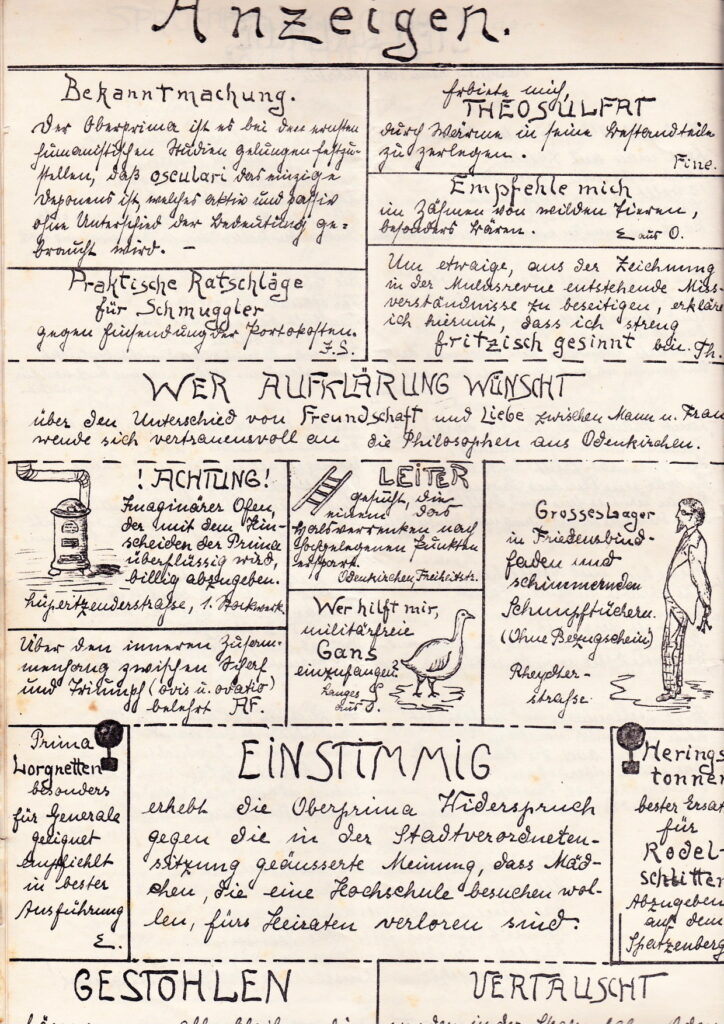 Anzeigen.
Bekanntmachung.
Der Oberprima ist es bei den ernsten
humanistischen Studien gelungen festzu-
stellen, daß osculari das einzige
Deponens ist, welches aktiv und passiv
ohne Unterschied der Bedeutung ge-
braucht wird. –
Praktische Ratschläge
für Schmuggler
gegen Einsendung der Portokosten.
J.S.
Erbiete mich,
THEOSULFAT
durch Wärme in seine Bestandteile
zu zerlegen.
Fine.
Empfehle mich
im Zähmen von wilden Tieren,
besonders Bären.
E aus O.
Um etwaige, aus der Zeichnung
in der Mulusrevue entstehende Miss-
verständnisse zu beseitigen, erkläre
ich hiermit, dass ich streng
fritzisch gesinnt bin. Th.
WER AUFKLÄRUNG WÜNSCHT
über den Unterschied von Freundschaft und Liebe zwischen Mann u. Frau
wende sich vertrauensvoll an die Philosophen aus Odenkirchen.
! ACHTUNG!
Imaginärer Ofen,
der mit dem Hin-
scheiden der Prima
überflüssig wird,
billig abzugeben.
1. Stockwerk
LEITER
gesucht, die
einem das
Halsverrenken nach
hochgelegenen Punkten
erspart.
Odenkirchen, Freiheitstr.
Wer hilft mir,
militärfreie
Gans
einzufangen?
Langes
aus
Grosses Lager
in Friedensbind-
faden und
schimmernden
Schnupftüchern.
(Ohne Bezugschein)
Rheydter-
strasse.
Über den inneren Zusam-
menhang zwischen Schaf
und Triumph (ovis u. ovatio)
belehrt AF.
Prima
Lorgnetten
besonders
für Generale
geeignet
empfiehlt
in bester
Ausführung
E.
EINSTIMMIG
erhebt die Oberprima Widerspruch
gegen die in der Stadtverordneten-
sitzung geäusserte Meinung, dass Mäd-
chen, die eine Hochschule besuchen wol-
len, fürs Heiraten verloren sind.
Herings
tonnen
bester Ersatz
für
Rodel-
schlitten
Abzugeben
auf dem
Spatzenberg
GESTOHLEN
VERTAUSCHT